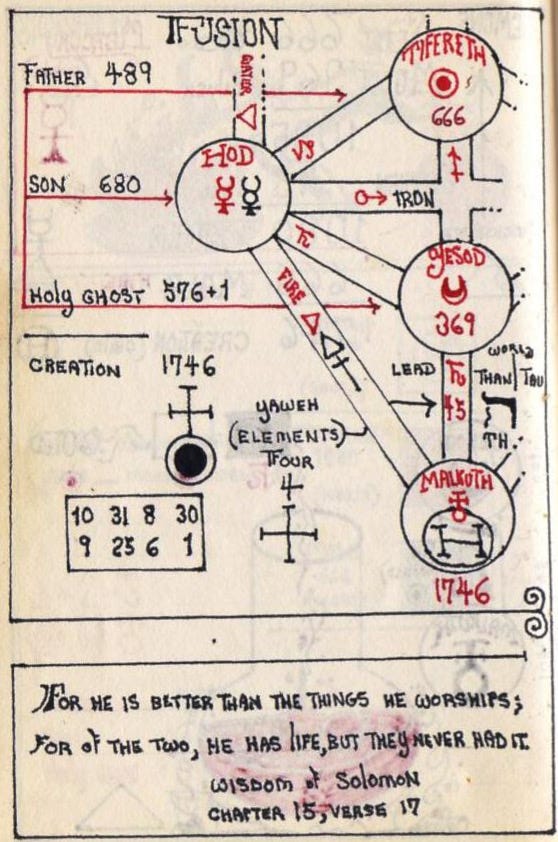 FUSION
FATHER 489
WATER
TIFERETH
666
HOD
SON 680
IRON
YESOD
369
FIRE
HOLY GHOST 576+1
CREATION 1746
LEAD
45
WORLD
THAN TAU
TH.
YAWEH
(ELEMENTS)
FOUR
4
MALKUTH
1746
10 31 8 30
9 25 6 1
FOR HE IS BETTER THAN THE THINGS HE WORSHIPS;
FOR OF THE TWO, HE HAS LIFE, BUT THEY NEVER HAD IT.
WISDOM OF SOLOMON
CHAPTER 15, VERSE 17